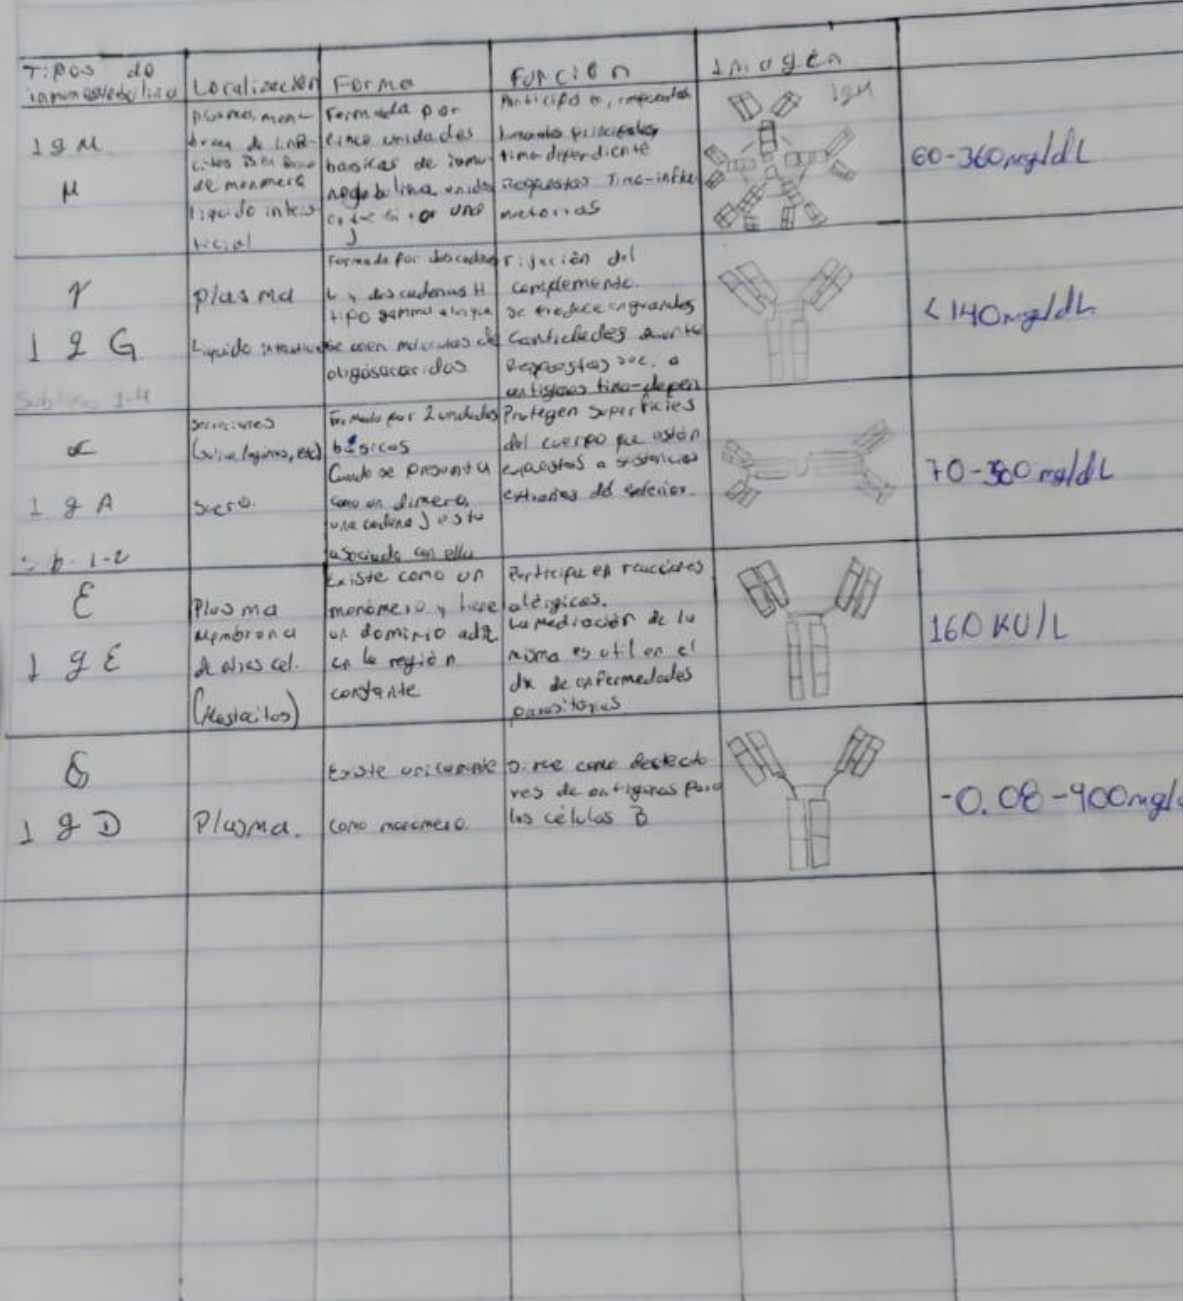 Tipos de
inmunoglobulina
Localización
Forma
Función
Imagen
IgM
μ
plasma, mem-
brana de linfo-
citos B en forma
de monmera
liquido inters
ticial
Formada por
cinco unidades
basicas de inmu
noglobulina unidas
por una
J
Participa en respuestas
principales
timo dependiente
Respuestas Timo-
IgM
60-360mg/dL
γ
IgG
Subclases 1-4
plasma
Liquido
Formada por dos cadenas
L y dos cadenas H
tipo gamma a las que
se unen moleculas de
oligosacaridos
Fijación del
complemento.
Se produce en grandes
cantidades
Respuestas sec. a
antigenos timo-depen
<140mg/dL
α
IgA
b. 1-2
Secreciones
(saliva lagrimas, etc)
Suero.
Formado por 2 unidades
básicas
Cuando se presenta
como un dimero,
una cadena J esta
asociada con ella
Protegen superficies
del cuerpo que están
expuestas a sustancias
extrañas del exterior.
70-380 mg/dL
ε
IgE
Plasma
Membrana
de otras cel.
(Mastocitos)
Existe como un
monómero y tiene
un dominio
en la región
constante
Participa en reacciones
alérgicas.
La mediación de la
misma es util en el
dx de enfermedades
parasitarias
160 KU/L
δ
IgD
Plasma.
Existe unicamente
como monomero.
Sirve como
res de antigenos para
las células B
-0.08-400mg/